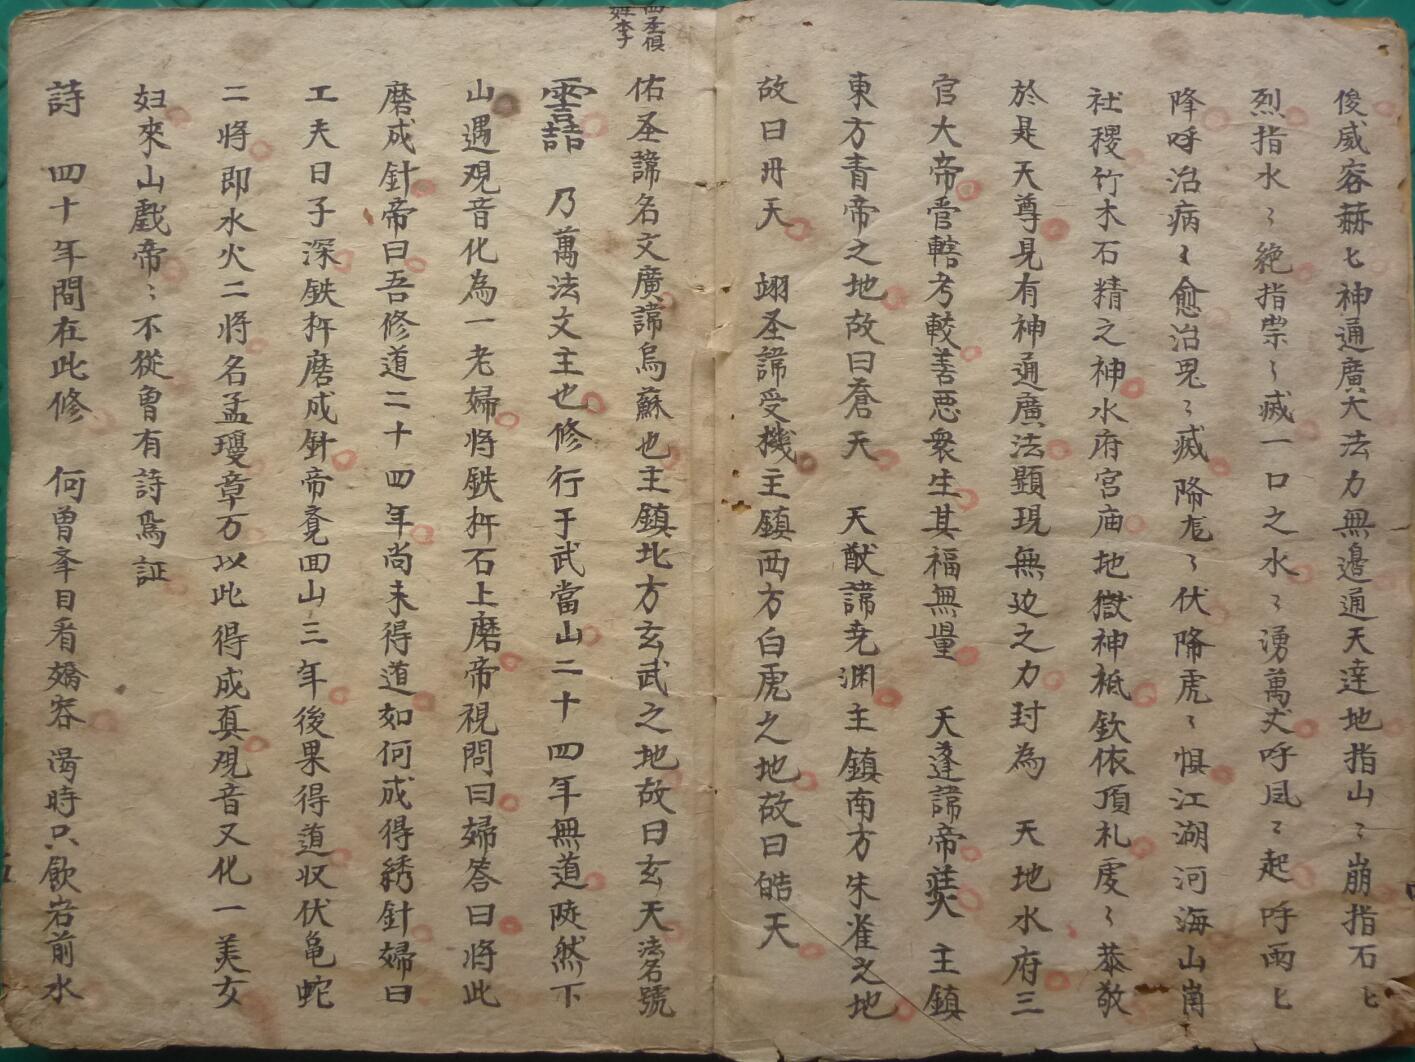 俊威容赫〻神通廣大法力無邊通天達地指山〻崩指石〻
烈指水〻絶指祟〻滅一口之水〻湧萬丈呼風〻起呼雨〻
降呼治病〻愈治鬼〻滅降龙〻伏降虎〻惧江湖河海山崗
社稷竹木石精之神水府宮庙地獄神祗欽依頂礼虔〻恭敬
於是天尊見有神通廣法顕現無边之力封為 天地水府三
官大帝管轄考較善惡衆生其福無量 天蓬諱帝 主鎮
東方青帝之地故曰蒼天 天猷諱尭渊主鎮南方朱雀之地
故曰冊天 翊圣諱受機主鎮西方白虎之地故曰皓天
佑圣諱名文廣諱烏蘇也主鎮北方玄武之地故曰玄天法名號
四圣俱
姓李
乃萬法文主也修行于武當山二十四年無道陡然下
山遇观音化為一老婦將鉄杵石上磨帝視問曰婦答曰將此
磨成針帝曰吾修道二十四年尚未得道如何成得綉針婦曰
工夫日子深鉄杵磨成針帝竟回山三年後果得道収伏龟蛇
二將即水火二將名孟瓊章万以此得成真观音又化一美女
妇來山戲帝〻不從曾有詩爲証
詩 四十年間在此修 何曾峯目看嬌容 渴時只飲岩前水